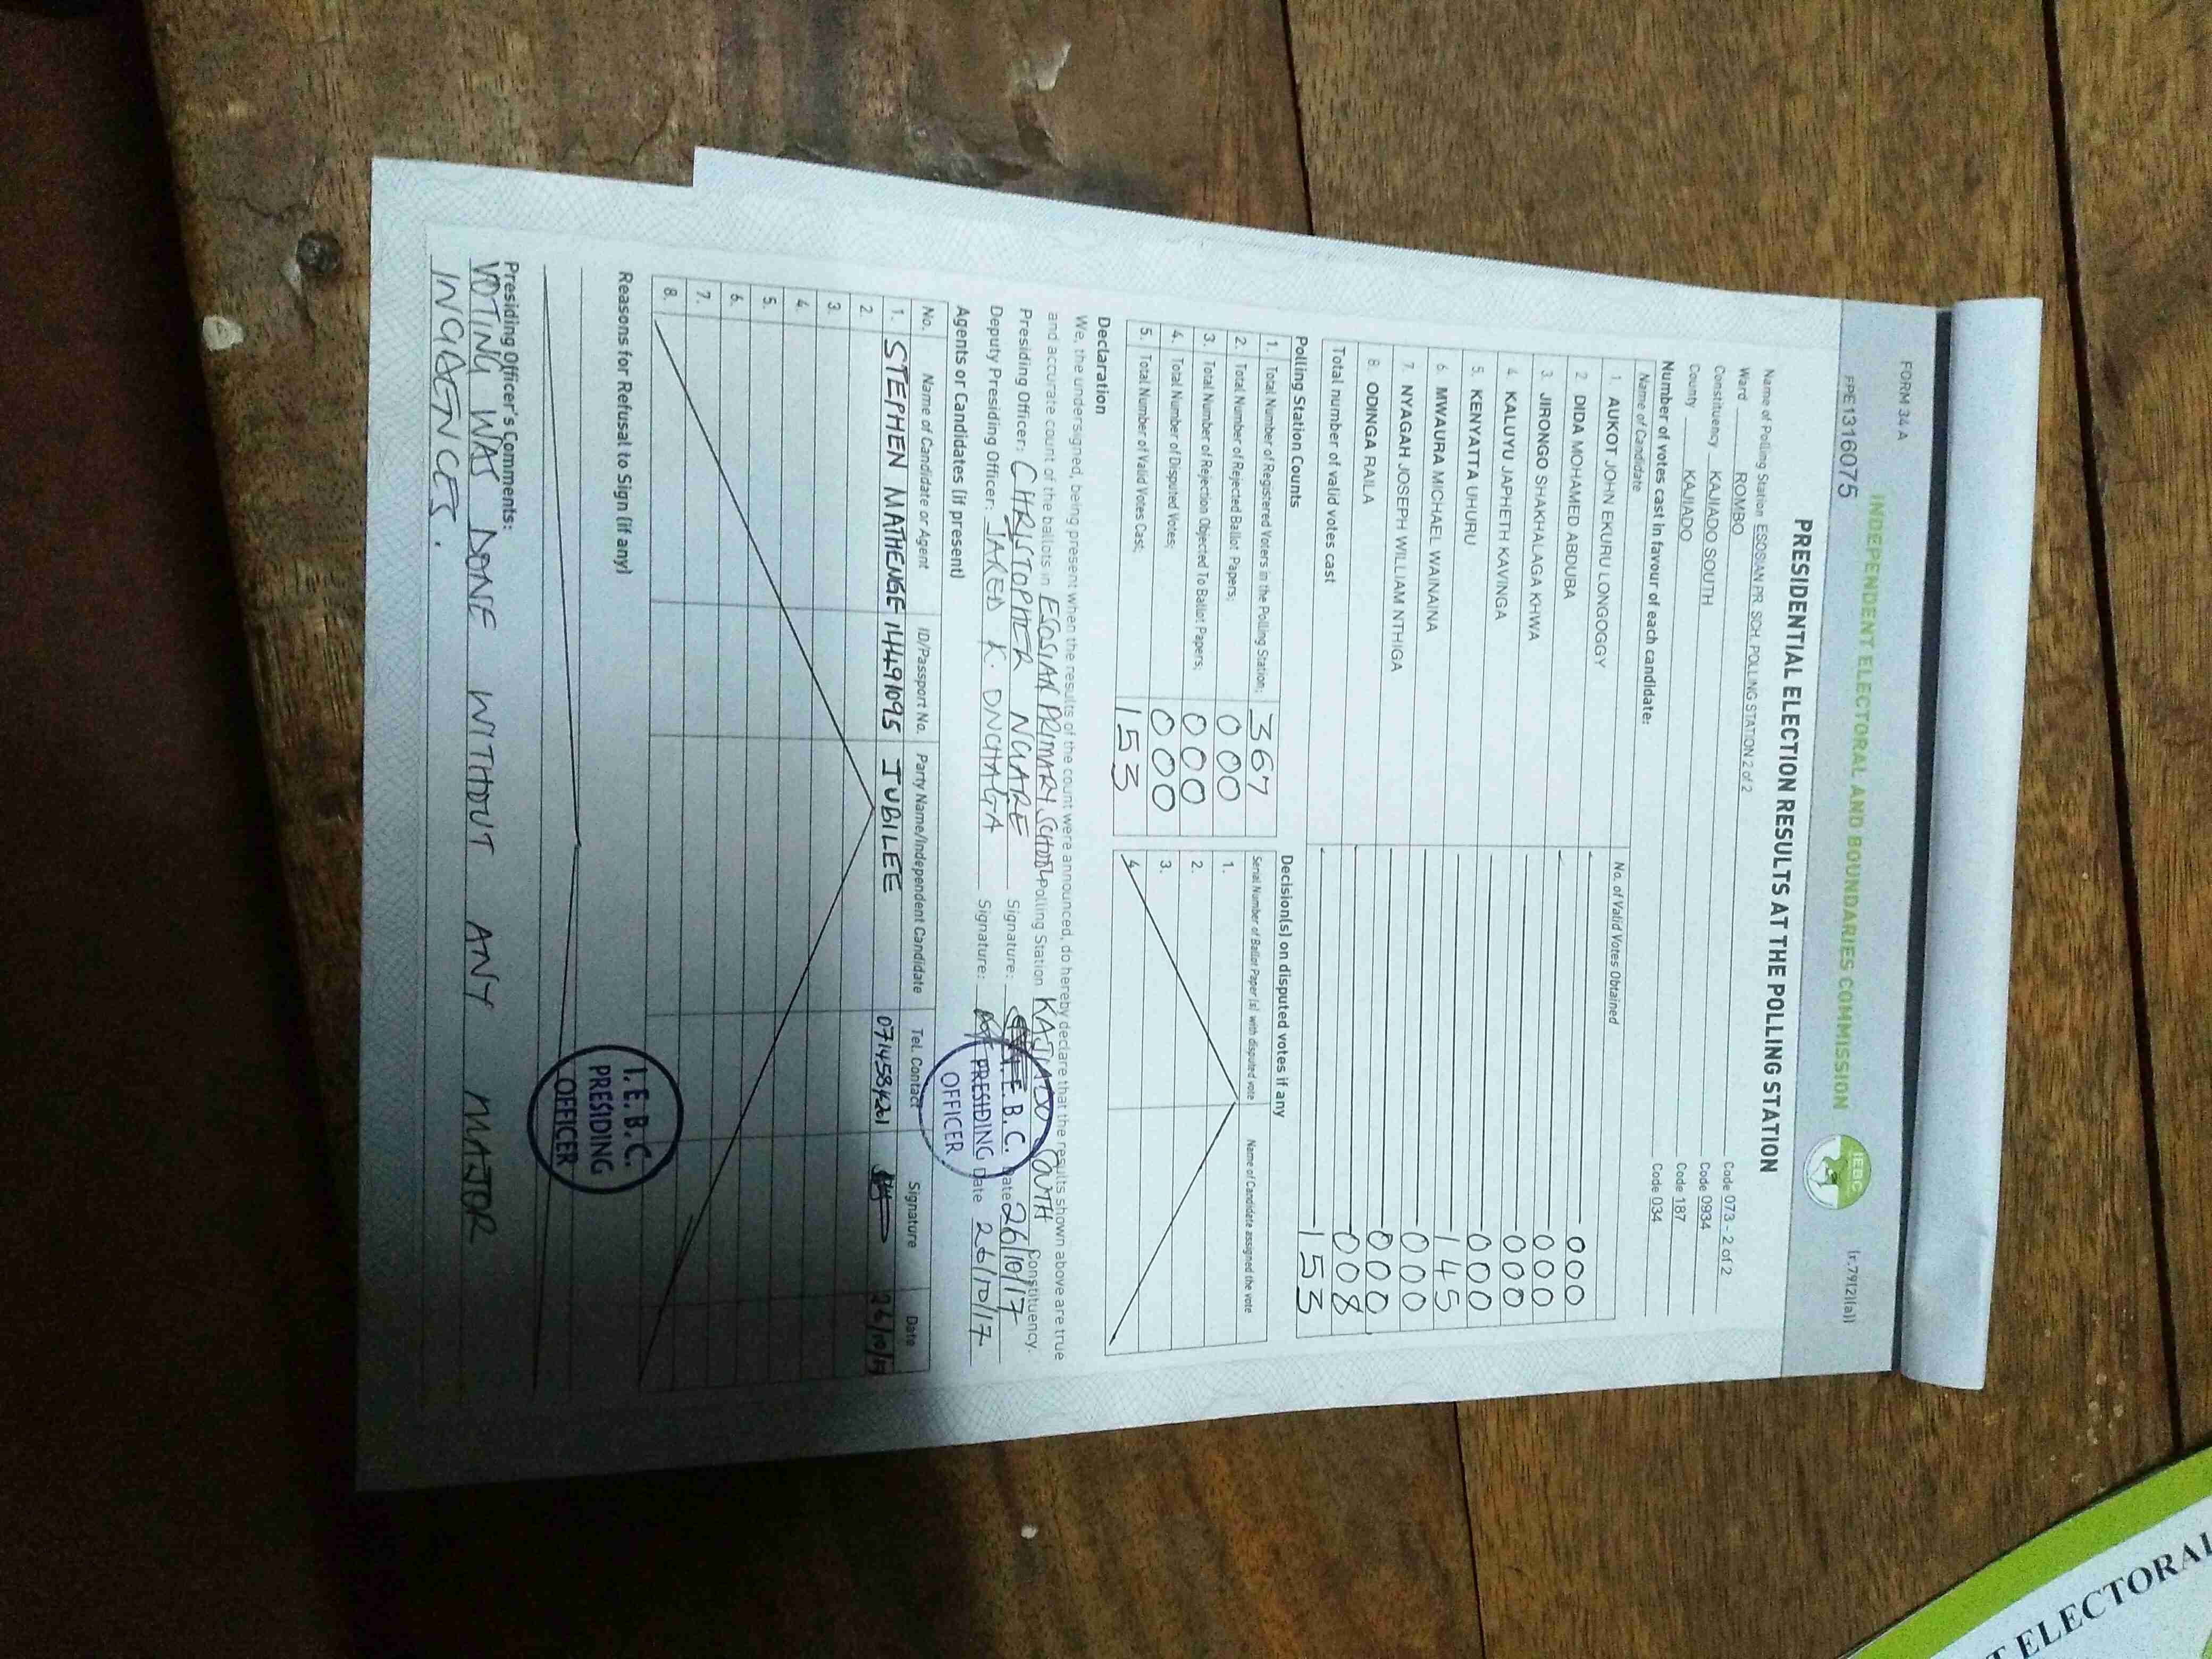 FORM 34 A
(r.79(2)(a))
INDEPENDENT ELECTORAL AND BOUNDARIES COMMISSION
IEBC
PPE1316075
PRESIDENTIAL ELECTION RESULTS AT THE POLLING STATION
Name of Polling Station ESOSIAN PR. SCH. POLLING STATION 2 of 2 Code 073 - 2 of 2
Ward ROMBO Code 0934
Constituency KAJIADO SOUTH Code 187
County KAJIADO Code 034
Number of votes cast in favour of each candidate:
Name of Candidate No. of Valid Votes Obtained
1. AUKOT JOHN EKURU LONGOGGY 000
2. DIDA MOHAMED ABDUBA 000
3. JIRONGO SHAKHALAGA KHWA 000
4. KALUYU JAPHETH KAVINGA 000
5. KENYATTA UHURU 145
6. MWAURA MICHAEL WAINAINA 000
7. NYAGAH JOSEPH WILLIAM NTHIGA 000
8. ODINGA RAILA 008
Total number of valid votes cast 153
Polling Station Counts
1. Total Number of Registered Voters in the Polling Station; 367
2. Total Number of Rejected Ballot Papers; 000
3. Total Number of Rejection Objected To Ballot Papers; 000
4. Total Number of Disputed Votes; 000
5. Total Number of Valid Votes Cast; 153
Decision(s) on disputed votes if any
Serial Number of Ballot Paper (s) with disputed vote Name of Candidate assigned the vote
1.
2.
3.
4.
Declaration
We, the undersigned, being present when the results of the count were announced, do hereby declare that the results shown above are true
and accurate count of the ballots in ESOSIAN PRIMARY SCHOOL Polling Station KAJIADO SOUTH Constituency.
Presiding Officer: CHRISTOPHER NGUARE Signature: Date 26/10/17
Deputy Presiding Officer: JARED K. ONCHAGA Signature: Date 26/10/17
I. E. B. C.
PRESIDING
OFFICER
Agents or Candidates (if present)
No. Name of Candidate or Agent ID/Passport No. Party Name/Independent Candidate Tel. Contact Signature Date
1. STEPHEN MATHENGE 14491095 JUBILEE 26/10/17
2.
3.
4.
5.
6.
7.
8.
Reasons for Refusal to Sign (if any)
I. E. B. C.
PRESIDING
OFFICER
Presiding Officer's Comments:
VOTING WAS DONE WITHOUT ANY MAJOR
INGAENCES.
T ELECTORAL